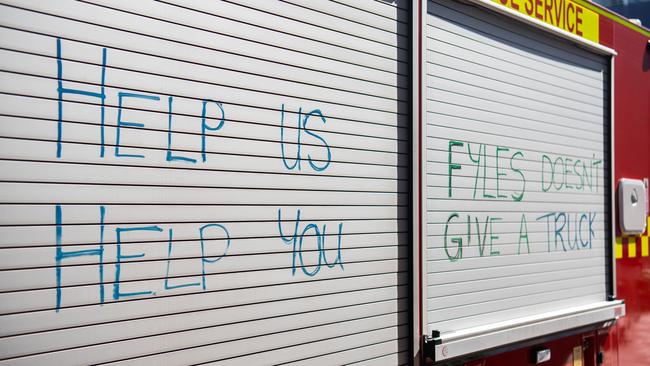 CE SERVICE
HELP US
HELP YOU
FYLES DOESN'T
GIVE A TRUCK